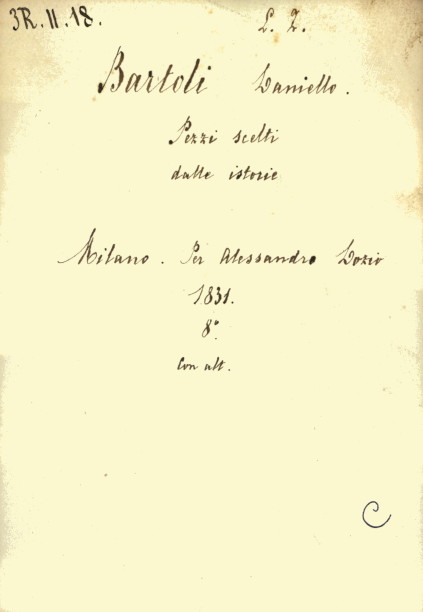 3R.II.18. L. Z.
Bartoli Daniello.
Pezzi scelti
dalle istorie
Milano. Per Alessandro Dozio
1831.
8°.
Con alt.
C